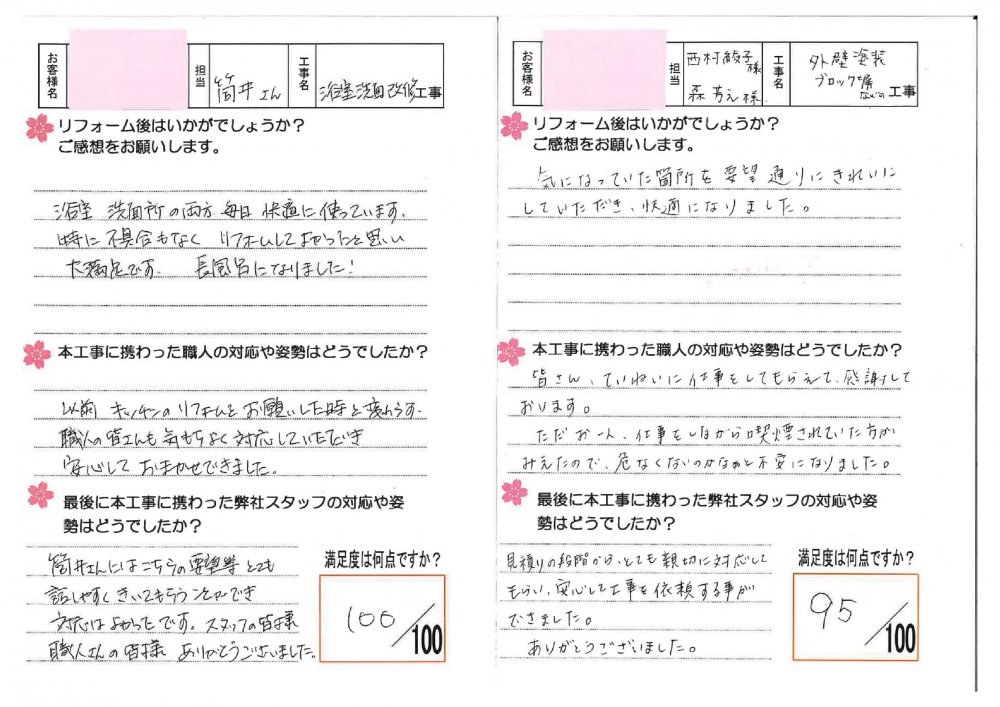 お客様名
担当
筒井さん
工事名
浴室洗面改修工事
リフォーム後はいかがでしょうか？
ご感想をお願いします。
浴室 洗面所の両方 毎日 快適に使っています.
特に不具合もなく リフォームしてよかったと思い
大満足です. 長風呂になりました!
本工事に携わった職人の対応や姿勢はどうでしたか？
以前 キッチンのリフォームを お願いした時と変わらず.
職人の皆さんも気持ちよく対応していただき
安心して おまかせできました.
最後に本工事に携わった弊社スタッフの対応や姿
勢はどうでしたか？
筒井さんにはこちらの要望等とても
話しやすくきいてもらうことができ
対応はよかったです. スタッフの皆様
職人さんの皆様 ありがとうございました.
満足度は何点ですか？
100/100
お客様名
担当
西村綾子様
森 様.
工事名
外壁塗装
ブロック塀
などの工事
リフォーム後はいかがでしょうか？
ご感想をお願いします。
気になっていた箇所を要望通りにきれいに
していただき、快適になりました。
本工事に携わった職人の対応や姿勢はどうでしたか？
皆さん、ていねいに仕事をしてもらえて、感謝して
おります。
ただお一人、仕事をしながら喫煙されていた方が
みえたので、危なくないのかなぁと不安になりました。
最後に本工事に携わった弊社スタッフの対応や姿
勢はどうでしたか？
見積りの段階から、とても親切に対応して
もらい、安心して工事を依頼する事が
できました。
ありがとうございました。
満足度は何点ですか？
95/100